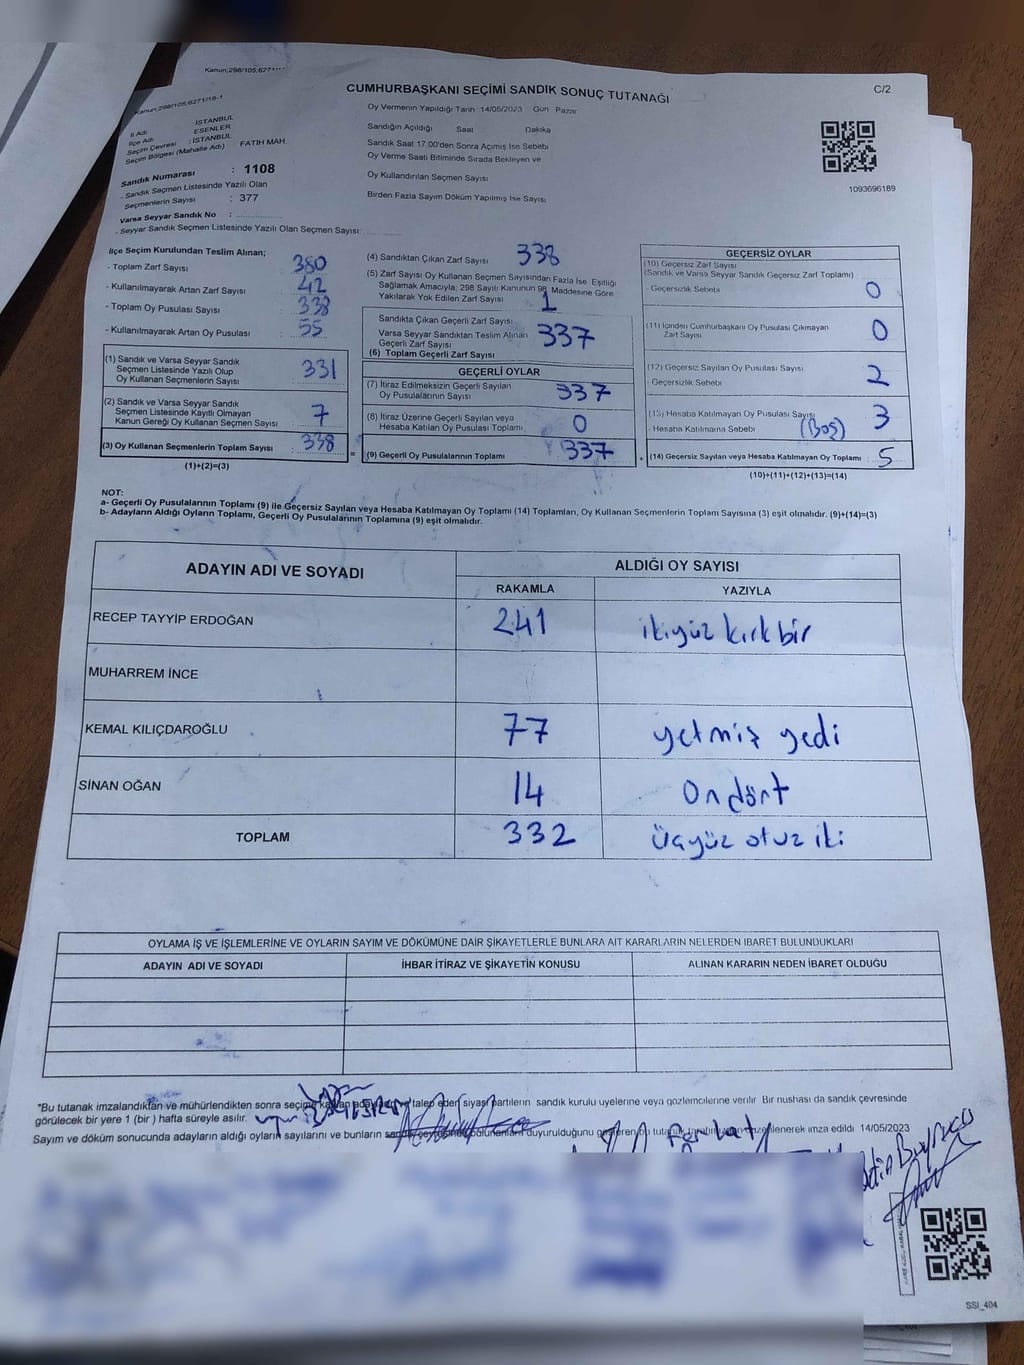 Kanun;298/105,6271/
Kanun;298/105,6271/18-1
CUMHURBAŞKANI SEÇİMİ SANDIK SONUÇ TUTANAĞI
C/2
Oy Vermenin Yapıldığı Tarih 14/05/2023 Gün Pazar
İl Adı : İSTANBUL
İlçe Adı : ESENLER
Seçim Çevresi : İSTANBUL
Seçim Bölgesi (Mahalle Adı) FATİH MAH.
Sandık Numarası : 1108
- Sandık Seçmen Listesinde Yazılı Olan
Seçmenlerin Sayısı : 377
Varsa Seyyar Sandık No :
- Seyyar Sandık Seçmen Listesinde Yazılı Olan Seçmen Sayısı:
Sandığın Açıldığı Saat Dakika
Sandık Saat 17.00'den Sonra Açımış İse Sebebi
Oy Verme Saati Bitiminde Sırada Bekleyen ve
Oy Kullandırılan Seçmen Sayısı
Birden Fazla Sayım Döküm Yapılmış İse Sayısı
1093696189
İlçe Seçim Kurulundan Teslim Alınan;
- Toplam Zarf Sayısı : 380
- Kullanılmayarak Artan Zarf Sayısı : 42
- Toplam Oy Pusulası Sayısı : 338
- Kullanılmayarak Artan Oy Pusulası : 55
(1) Sandık ve Varsa Seyyar Sandık
Seçmen Listesinde Yazılı Olup
Oy Kullanan Seçmenlerin Sayısı : 331
(2) Sandık ve Varsa Seyyar Sandık
Seçmen Listesinde Kayıtlı Olmayan
Kanun Gereği Oy Kullanan Seçmen Sayısı : 7
(3) Oy Kullanan Seçmenlerin Toplam Sayısı : 338
(1)+(2)=(3)
(4) Sandıktan Çıkan Zarf Sayısı 338
(5) Zarf Sayısı Oy Kullanan Seçmen Sayısından Fazla İse, Eşitliği
Sağlamak Amacıyla; 298 Sayılı Kanunun 98. Maddesine Göre
Yakılarak Yok Edilen Zarf Sayısı 1
Sandıkta Çıkan Geçerli Zarf Sayısı
Varsa Seyyar Sandıktan Teslim Alınan
Geçerli Zarf Sayısı 337
(6) Toplam Geçerli Zarf Sayısı
GEÇERLİ OYLAR
(7) İtiraz Edilmeksizin Geçerli Sayılan
Oy Pusulalarının Sayısı : 337
(8) İtiraz Üzerine Geçerli Sayılan veya
Hesaba Katılan Oy Pusulası Toplamı : 0
= (9) Geçerli Oy Pusulalarının Toplamı : 337
GEÇERSİZ OYLAR
(10) Geçersiz Zarf Sayısı
(Sandık ve Varsa Seyyar Sandık Geçersiz Zarf Toplamı)
- Geçersizlik Sebebi 0
(11) İçinden Cumhurbaşkanı Oy Pusulası Çıkmayan
Zarf Sayısı 0
(12) Geçersiz Sayılan Oy Pusulası Sayısı
- Geçersizlik Sebebi 2
(13) Hesaba Katılmayan Oy Pusulası Sayısı
- Hesaba Katılmama Sebebi (Boş) 3
+ (14) Geçersiz Sayılan veya Hesaba Katılmayan Oy Toplamı : 5
(10)+(11)+(12)+(13)=(14)
NOT:
a- Geçerli Oy Pusulalarının Toplamı (9) ile Geçersiz Sayılan veya Hesaba Katılmayan Oy Toplamı (14) Toplamları, Oy Kullanan Seçmenlerin Toplam Sayısına (3) eşit olmalıdır. (9)+(14)=(3)
b- Adayların Aldığı Oyların Toplamı, Geçerli Oy Pusulalarının Toplamına (9) eşit olmalıdır.
ADAYIN ADI VE SOYADI
ALDIĞI OY SAYISI
RAKAMLA YAZIYLA
RECEP TAYYİP ERDOĞAN 241 ikiyüz kırk bir
MUHARREM İNCE
KEMAL KILIÇDAROĞLU 77 yetmiş yedi
SİNAN OĞAN 14 Ondört
TOPLAM 332 Üçyüz otuz iki
OYLAMA İŞ VE İŞLEMLERİNE VE OYLARIN SAYIM VE DÖKÜMÜNE DAİR ŞİKAYETLERLE BUNLARA AİT KARARLARIN NELERDEN İBARET BULUNDUKLARI
ADAYIN ADI VE SOYADI İHBAR İTİRAZ VE ŞİKAYETİN KONUSU ALINAN KARARIN NEDEN İBARET OLDUĞU
*Bu tutanak imzalandıktan ve mühürlendikten sonra seçime talep eden siyasi partilerin sandık kurulu üyelerine veya gözlemcilerine verilir. Bir nüshası da sandık çevresinde
görülecek bir yere 1 (bir) hafta süreyle asılır.
Sayım ve döküm sonucunda adayların aldığı oyların sayılarını ve bunların duyurulduğunu imza edildi 14/05/2023
Ferhat
SSİ_404